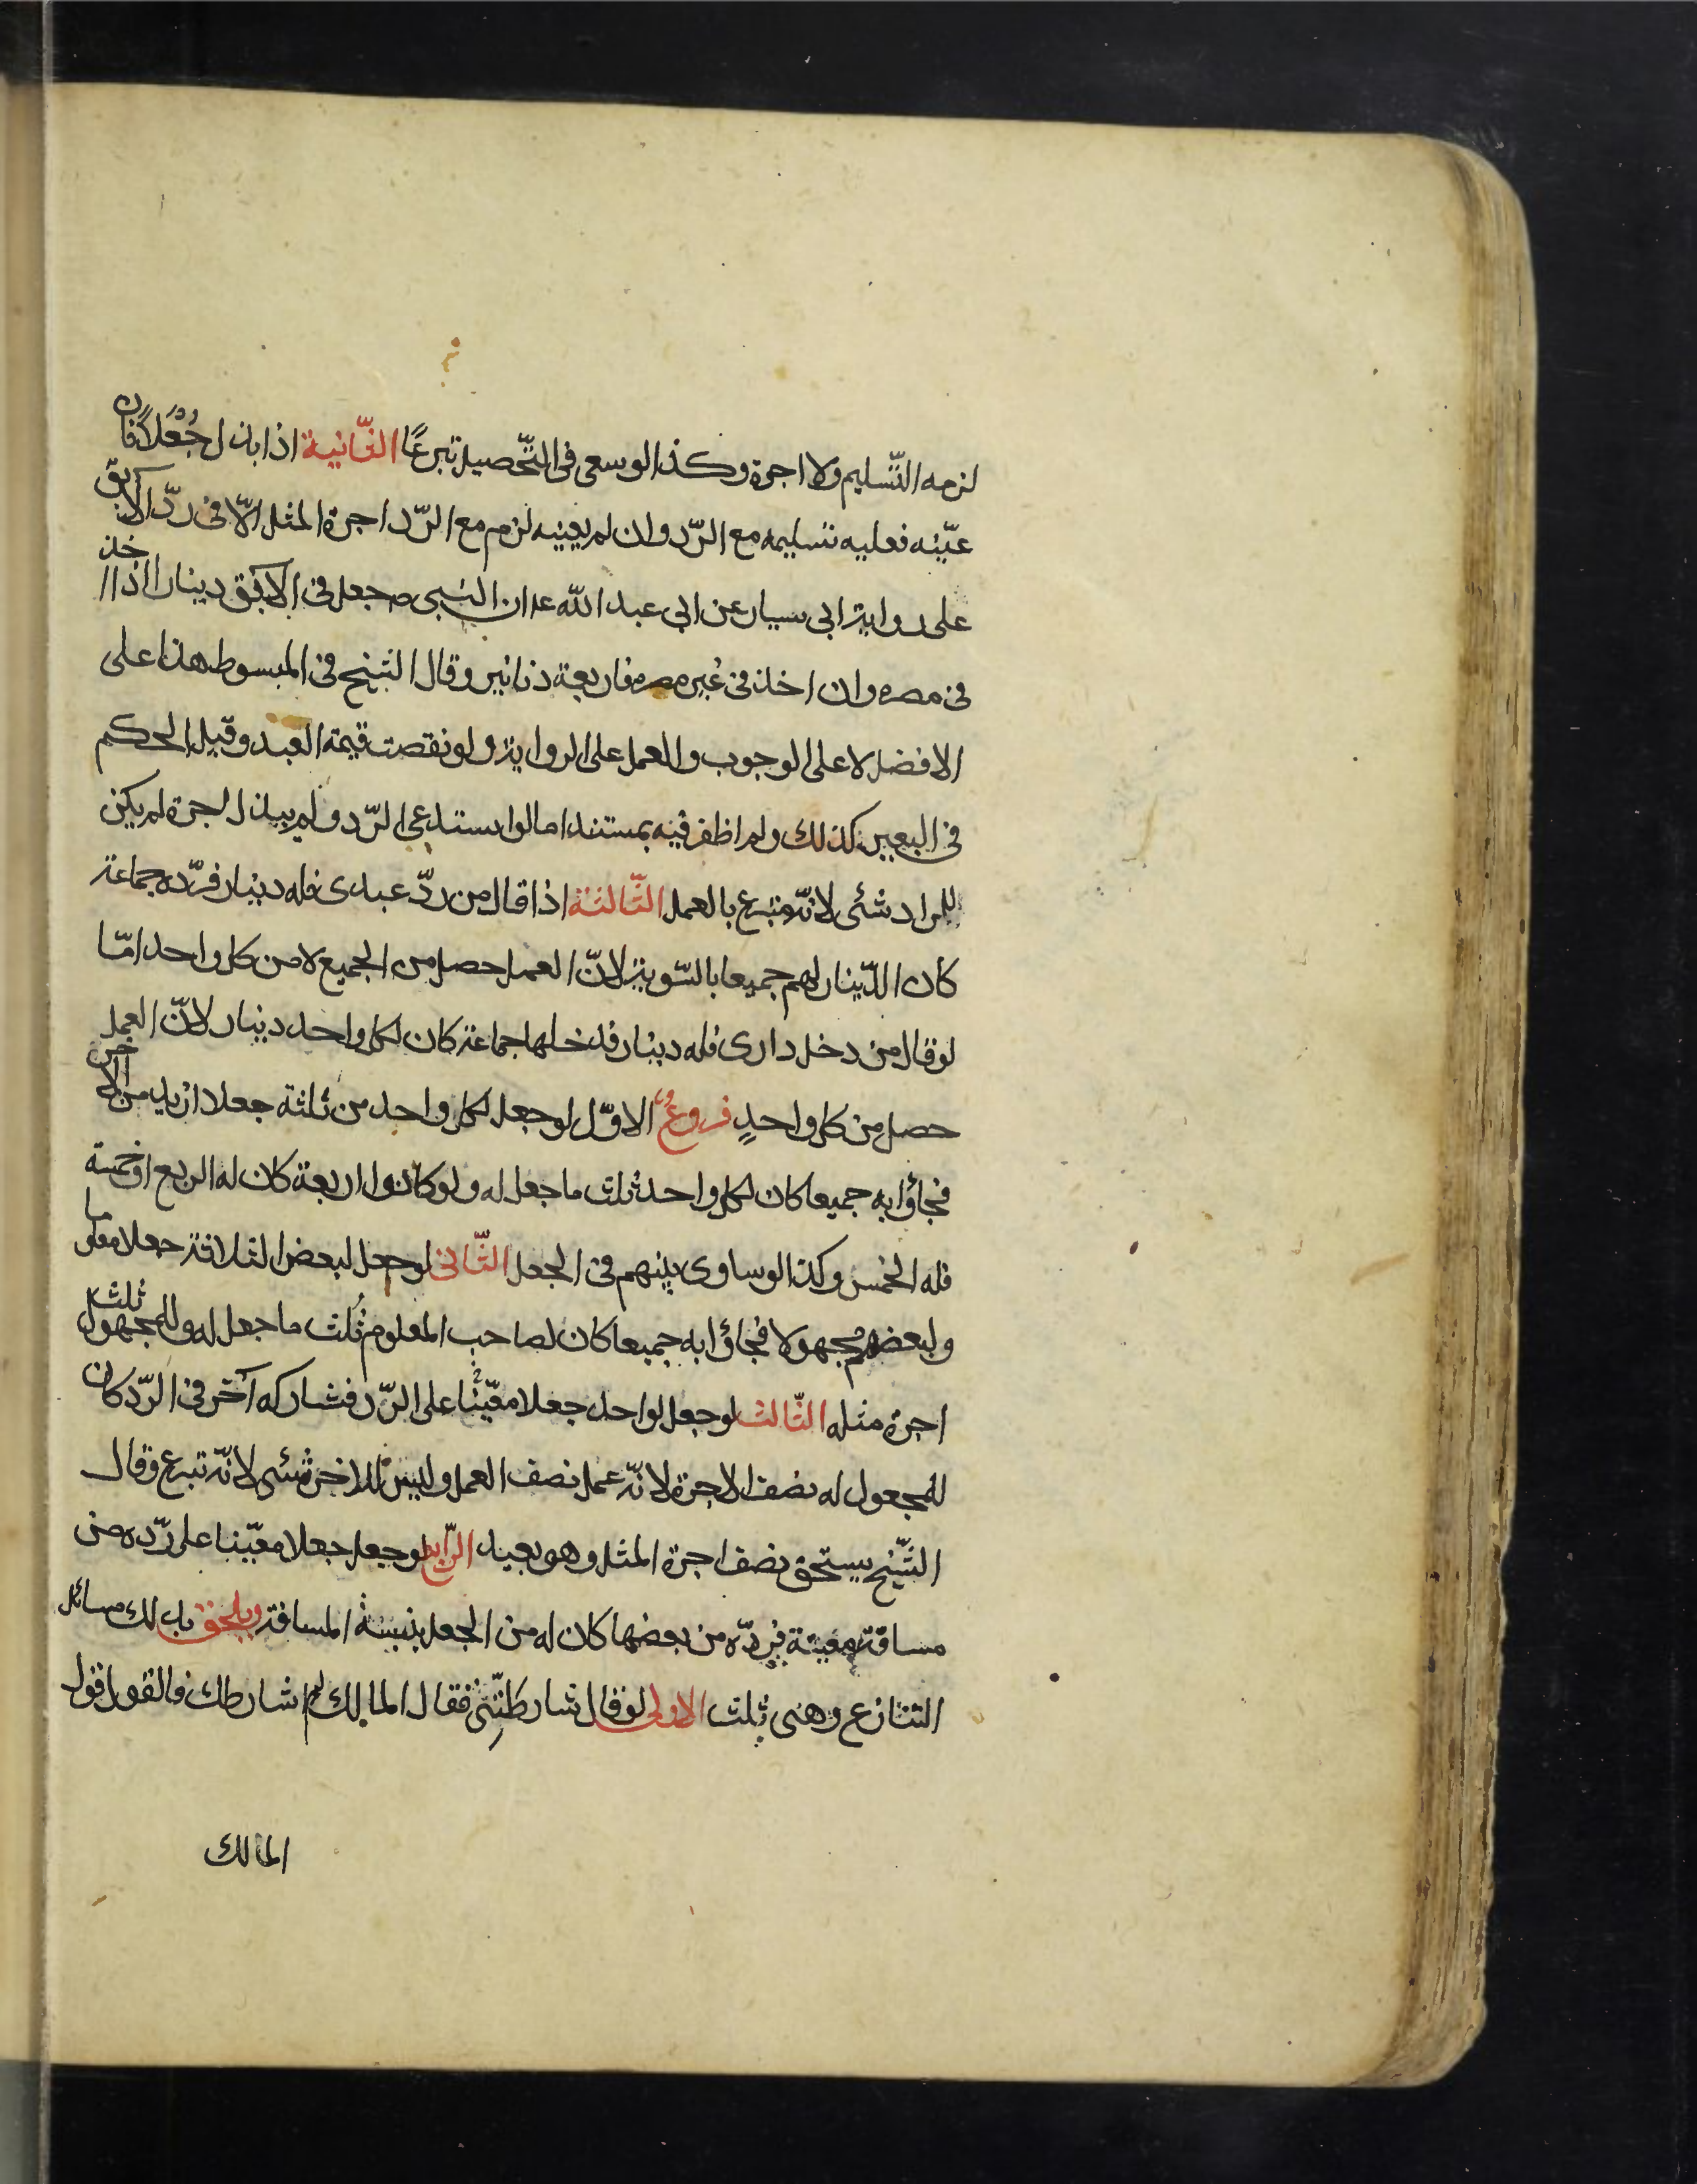 لزمه التّسليم ولا اجرة وكذا لو سعى فى التّحصيل تبرعًا الثّانية اذا بذل جُعلًا فان
عيّنه فعليه تسليمه مع الرّد وان لم يعينه لزم مع الرّد اجرة المثل الّا فى ردّ الابق
على رواية ابى سيار عن ابى عبد الله ع ان النبى ص جعل فى الابق دينارا اذا اخذ
فى مصره وان اخذ فى غير مصره فاربعة دنانير وقال الشيخ فى المبسوط هذا على
الافضل لا على الوجوب والعمل على الرواية ولو نقصت قيمة العبد وقيل الحكم
فى البعير كذلك ولم اظفر فيه بمستند اما لو استدعى الرّد ولم يبذل اجرة لم يكن
للراد شئى لانّه متبرع بالعمل الثّالثة اذا قال من ردّ عبدى فله دينار فردّه جماعة
كان الدّينار لهم جميعا بالسّوية لانّ العمل حصل من الجميع لا من كل واحد امّا
لو قال من دخل دارى فله دينار فدخلها جماعة كان لكل واحد دينار لانّ العمل
حصل من كل واحدٍ فروعٌ الاوّل لو جعل لكل واحد من ثلثة جعلا ازيد من الاخر
فجاؤا به جميعا كان لكل واحد ثلث ما جعل له ولو كانوا اربعة كان له الربع او خمسة
فله الخمس وكذا لو ساوى بينهم فى الجعل الثّانى لو جعل لبعض الثلاثة جعلا معلوما
ولبعضهم مجهولا فجاؤا به جميعا كان لصاحب المعلوم ثُلث ما جعل له وللمجهول ثلث
اجرة مثله الثّالث لو جعل لواحد جعلا معيّنًا على الرّد فشاركه آخر فى الرّد كان
للمجعول له نصف الاجرة لانّه عمل نصف العمل وليس للاخر شئى لانّه تبرع وقال
الشّيخ يستحق نصف اجرة المثل وهو بعيد الرّابع لو جعل جعلا معيّنا على ردّه من
مسافة معينة فردّه من بعضها كان له من الجعل بنسبة المسافة ويلحق بذلك مسائل
التنازع وهى ثلث الاولى لو قال شارطتنى فقال المالك لم اشارطك فالقول قول
المالك